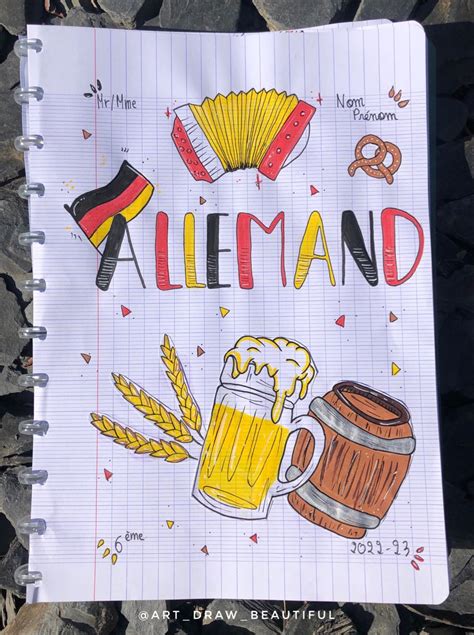 Mr/Mme
Nom
Prénom
ALLEMAND
6ème
2022-23
@ART_DRAW_BEAUTIFUL